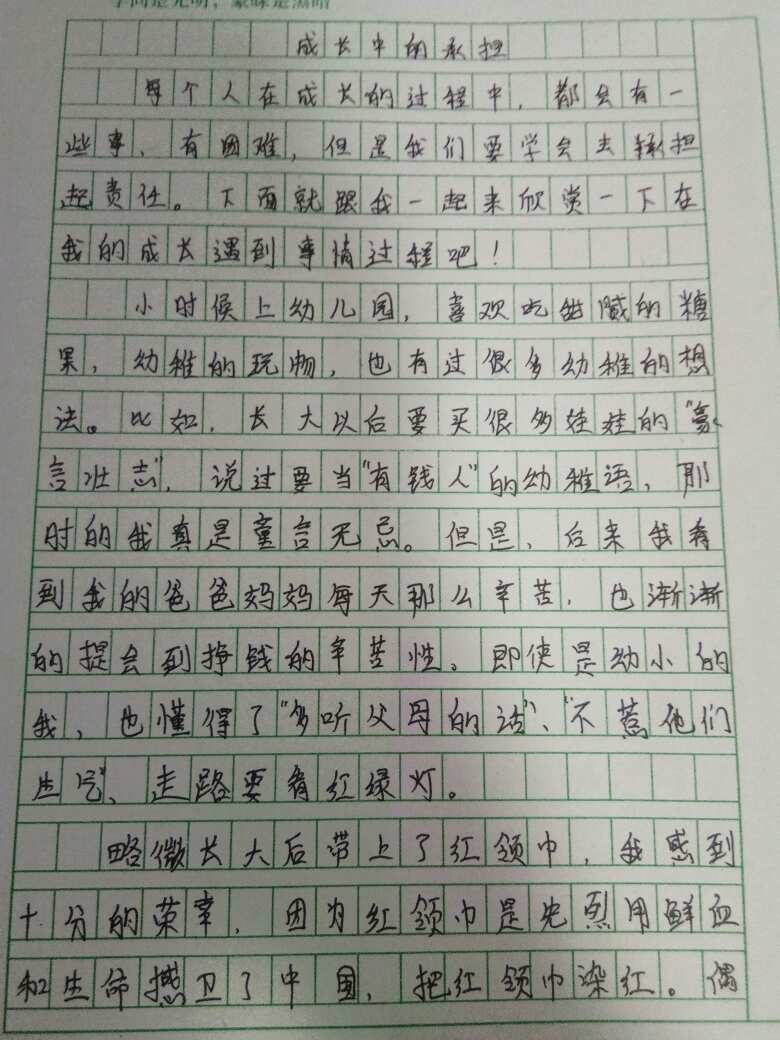 学问是光明，蒙昧是黑暗
成长中的承担
每个人在成长的过程中，都会有一
些事、有困难，但是我们要学会去承担
起责任。下面就跟我一起来欣赏一下在
我的成长遇到事情过程吧！
小时候上幼儿园，喜欢吃甜腻的糖
果，幼稚的玩物，也有过很多幼稚的想
法。比如，长大以后要买很多娃娃的“豪
言壮志”，说过要当“有钱人”的幼稚语，那
时的我真是童言无忌。但是，后来我看
到我的爸爸妈妈每天那么辛苦，也渐渐
的提会到挣钱的辛苦性。即使是幼小的
我，也懂得了“多听父母的话”、“不惹他们
生气”、走路要看红绿灯。
略微长大后带上了红领巾，我感到
十分的荣幸，因为红领巾是先烈用鲜血
和生命撼卫了中国，把红领巾染红。偶